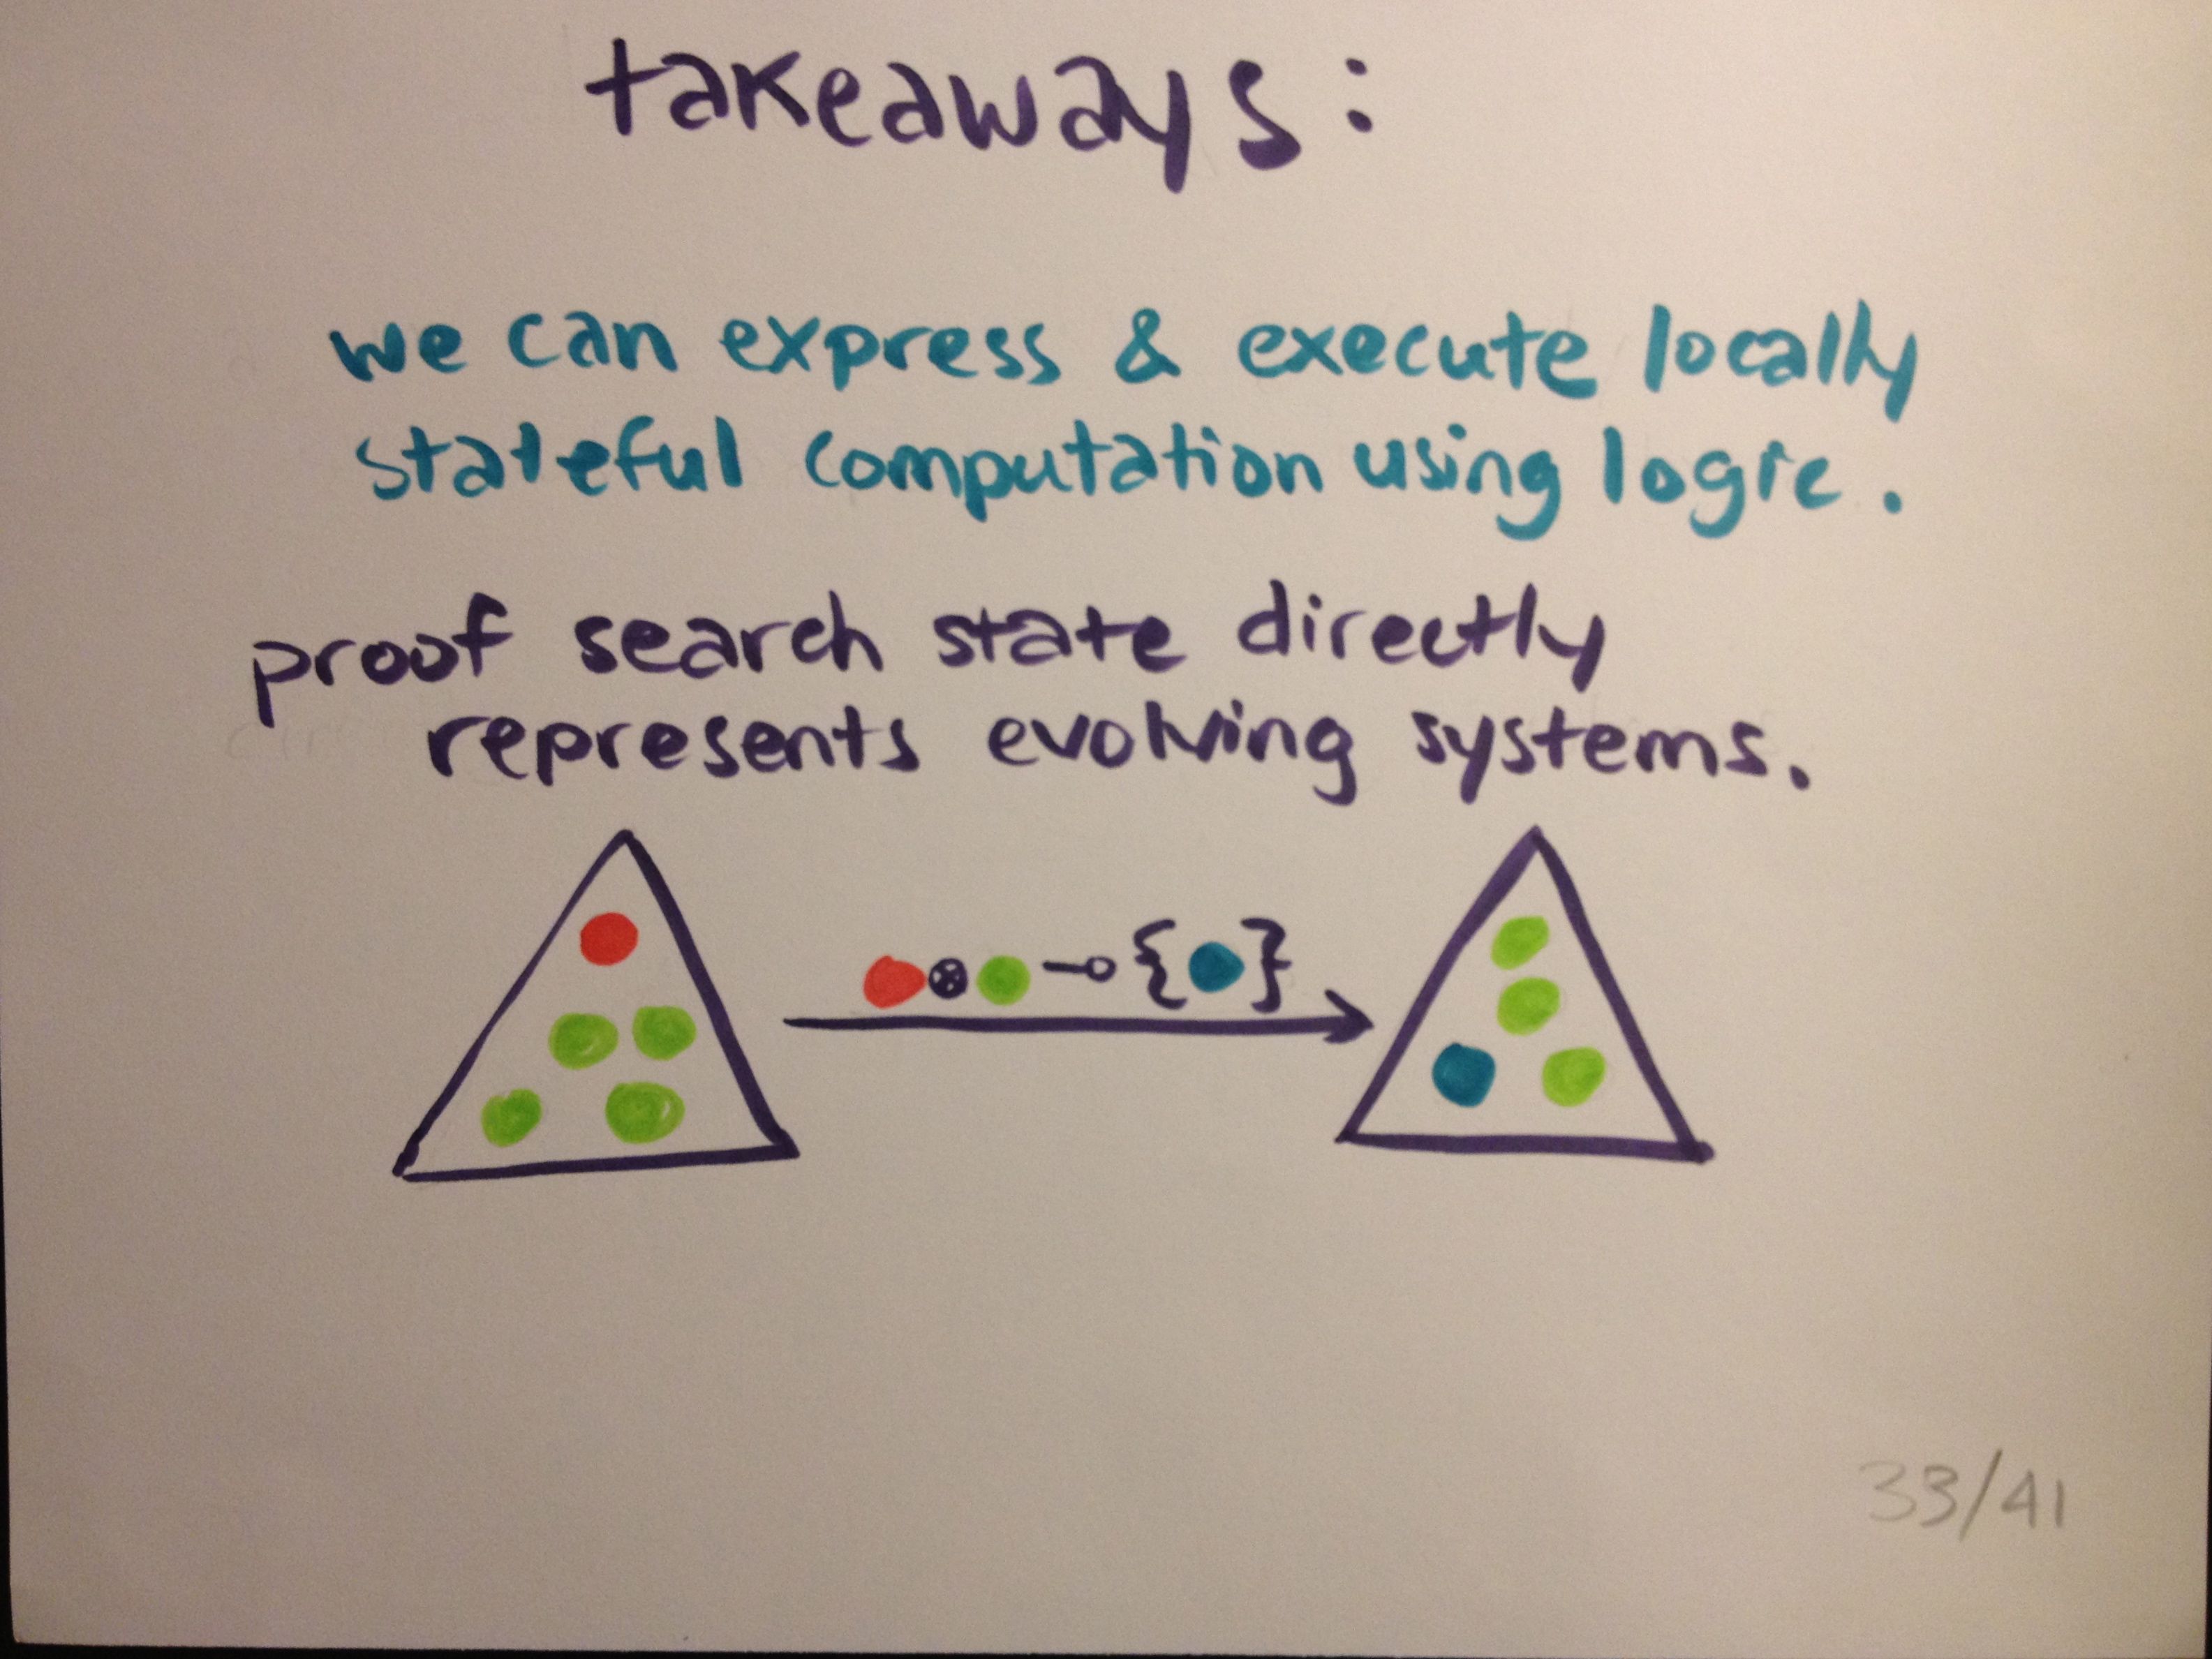 takeaways:
we can express & execute locally
stateful computation using logic.
proof search state directly
represents evolving systems.
⊗ ⊸ { }
33/41